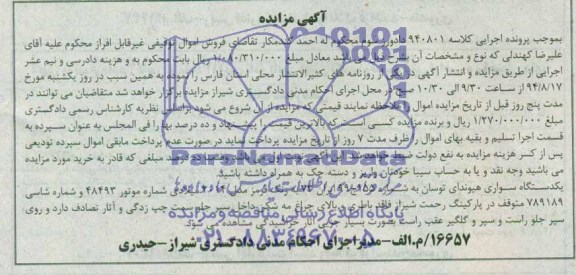 آگهی مزایده
بموجب پرونده اجرایی کلاسه ۹۴۰۸۰۱ دادورز سوم محکوم له احمد خدمتکار تقاضای فروش اموال توقیفی غیرقابل افراز محکوم علیه آقای
علیرضا کهندلی که نوع و مشخصات آن بشرح ذیل می باشد معادل مبلغ ریال بابت محکوم به و هزینه دادرسی و نیم عشر
اجرایی از طریق مزایده و انتشار آگهی در یکی از روزنامه های کثیرالانتشار محلی استان فارس را نموده به همین سبب در روز یکشنبه مورخ
۹۴/۸/۱۷ از ساعت ۹/۳۰ الی ۱۰/۳۰ صبح در محل اجرای احکام مدنی دادگستری شیراز مزایده برگزار خواهد شد متقاضیان می توانند در
مدت پنج روز قبل از تاریخ مزایده اموال را ملاحظه نمایند قیمتی که مزایده از آن شروع می شود براساس نظریه کارشناس رسمی دادگستری
مبلغ ۱/۲۷۰/۰۰۰/۰۰۰ ریال و برنده مزایده کسی است که بالاترین قیمت را پیشنهاد و ده درصد بهاء را فی المجلس به عنوان سپرده به
قسمت اجرا تسلیم و بقیه بهای اموال را ظرف مدت ۷ روز از تاریخ مزایده پرداخت نماید در صورت عدم پرداخت مابقی اموال سپرده تودیعی
پس از کسر هزینه مزایده به نفع دولت ضبط خواهد شد مبلغی که قادر به خرید مورد مزایده
می باشید وجه نقد و یا به حساب سیبا خودتان واریز و دسته چک به همراه داشته باشید.
یکدستگاه سواری هیوندای توسان به شماره شماره موتور ۴۸۴۹۳ و شماره شاسی
۷۸۹۱۸۹ متوقف در پارکینگ رحمت شیراز فاقد باطری و بالای چراغ مه شکن داخل سپر جلو سمت چپ زدگی و آثار تصادف دارد و روی
سپر جلو راست و سپر و گلگیر عقب راست بصورت بسیار جزیی آثار خراشیدگی مشاهده می شود
۱۶۶۵۷/م.الف-مدیر اجرای احکام مدنی دادگستری شیراز-حیدری
ParsNamadData
پایگاه اطلاع رسانی مناقصه و مزایده